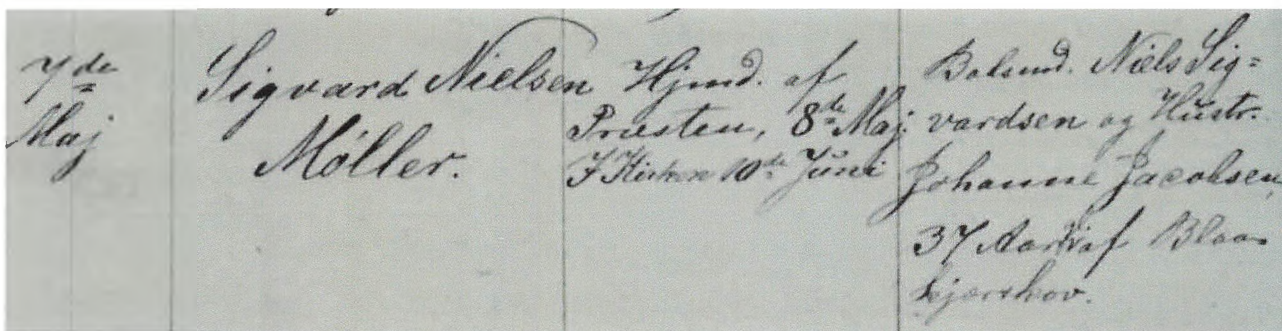 7de
Maj
Sigvard Nielsen
Møller.
Hjmd. af
Præsten, 8de Maj.
I Kirken 10de Juni
Bolsmd. Niels Sig=
vardsen og Hustr.
Johanne Jacobsen,
37 Aar, af Blaa-
kjærskov.